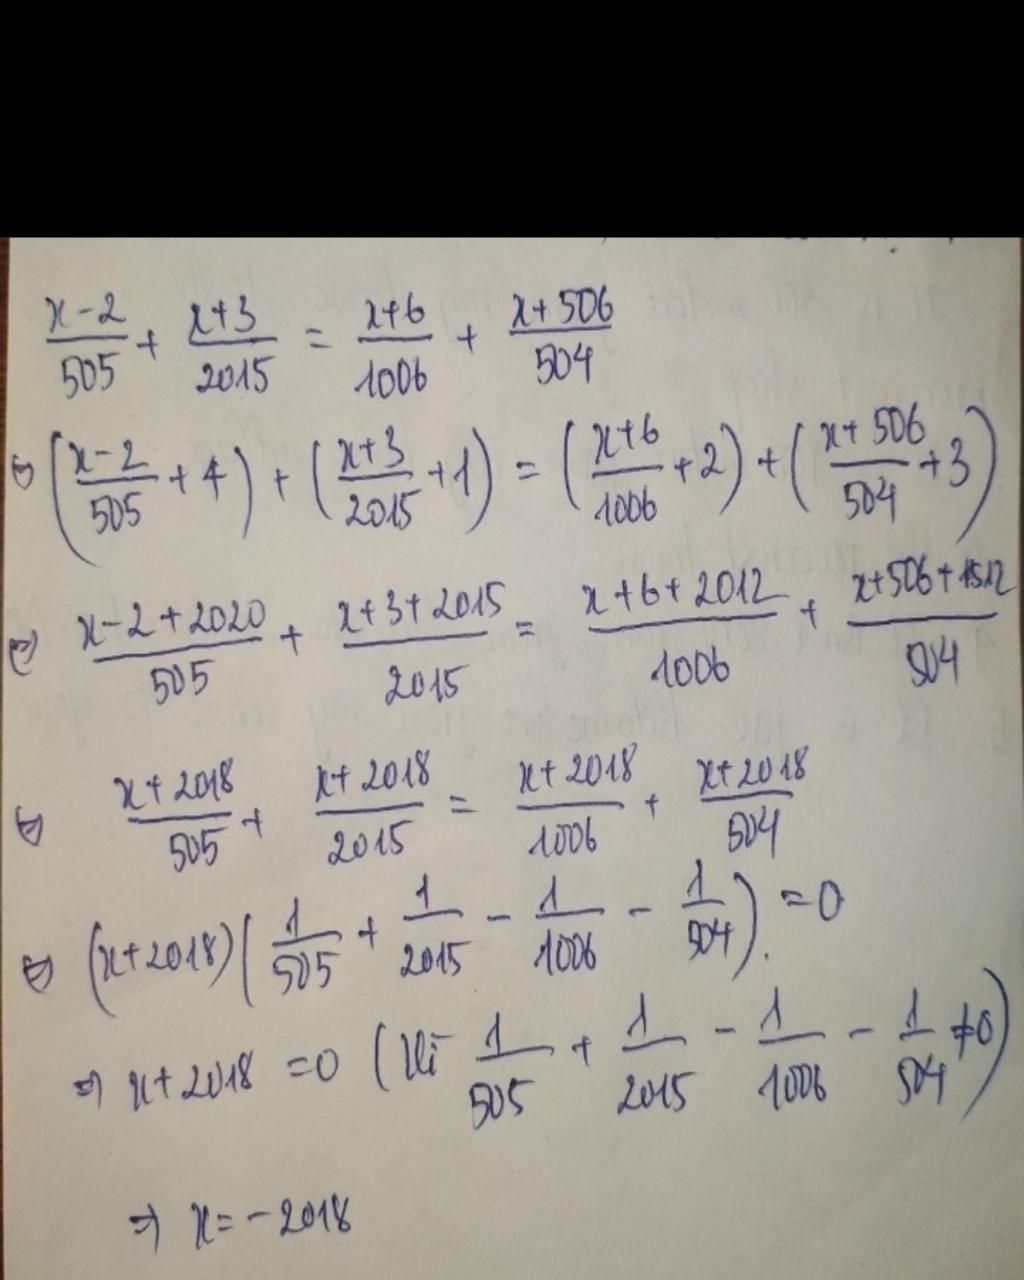 x-2/505 + x+3/2015 = x+6/1006 + x+506/504
⇔ (x-2/505 + 4) + (x+3/2015 + 1) = (x+6/1006 + 2) + (x+506/504 + 3)
⇔ x-2+2020/505 + x+3+2015/2015 = x+6+2012/1006 + x+506+1512/504
⇔ x+2018/505 + x+2018/2015 = x+2018/1006 + x+2018/504
⇔ (x+2018)(1/505 + 1/2015 - 1/1006 - 1/504). =0
⇒ x+2018 =0 (Vì 1/505 + 1/2015 - 1/1006 - 1/504 ≠0)
⇒ x=-2018